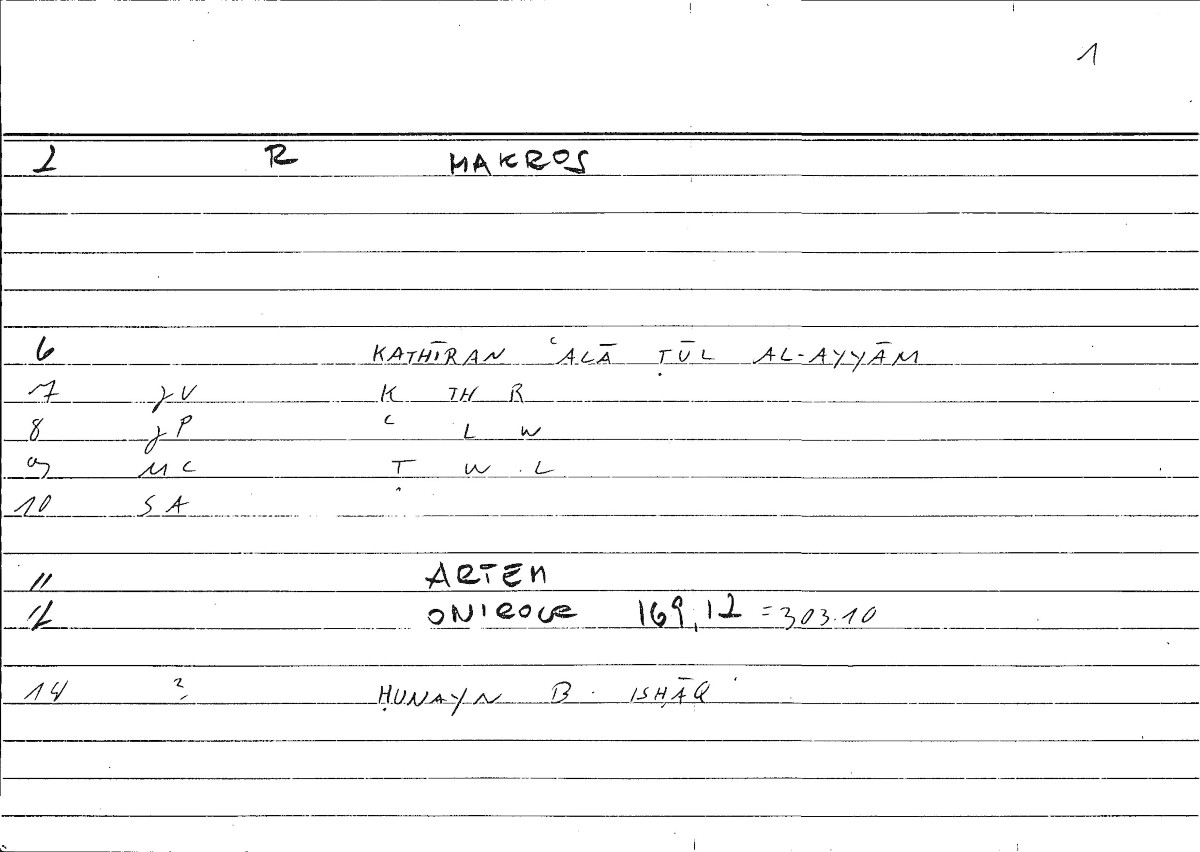 1
1 R MAKROS
6 KATHĪRAN ʿALĀ ṬŪL AL-AYYĀM
7 yV K TH R
8 yP ʿ L W
9 MC Ṭ W L
10 SA
11 ARTEM
12 ONIROCR 169,12 = 303.10
14 ? ḤUNAYN B. ISḤĀQ